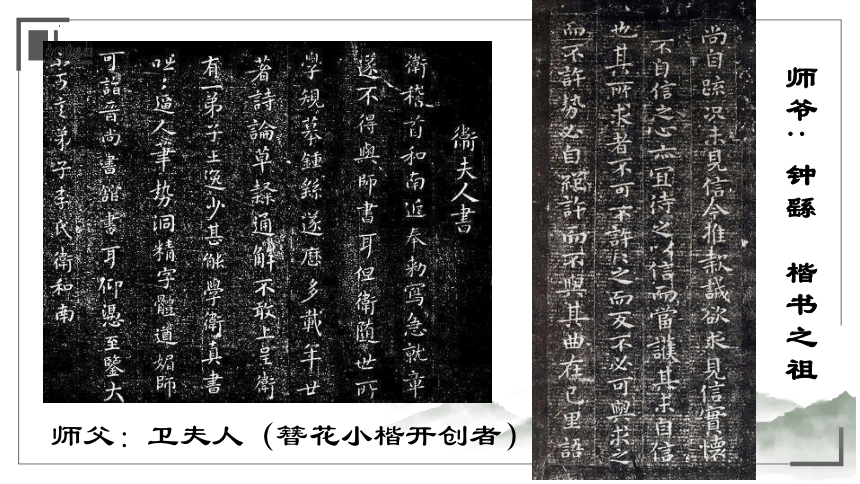 衛夫人書
衛稽首和南近奉勅寫急就章
遂不得與師書耳但衛隨世所
學規摹鍾繇遂歷多載年廿
著詩論草隸通解不敢上呈衛
有一弟子王逸少甚能學衛真書
咄咄逼人筆势洞精字體遒媚師
可詣晉尚書館書耳仰憑至鑒大
弟子李氏衛和南
尚自疏况未見信今推款誠欲求見信實懷
不自信之心亦宜待之以信而當護其未自信
也其所求者不可不許許之而反不必可與求之
而不許势必自絕許而不與其曲在己里語
师爷：钟繇 楷书之祖
师父：卫夫人（簪花小楷开创者）